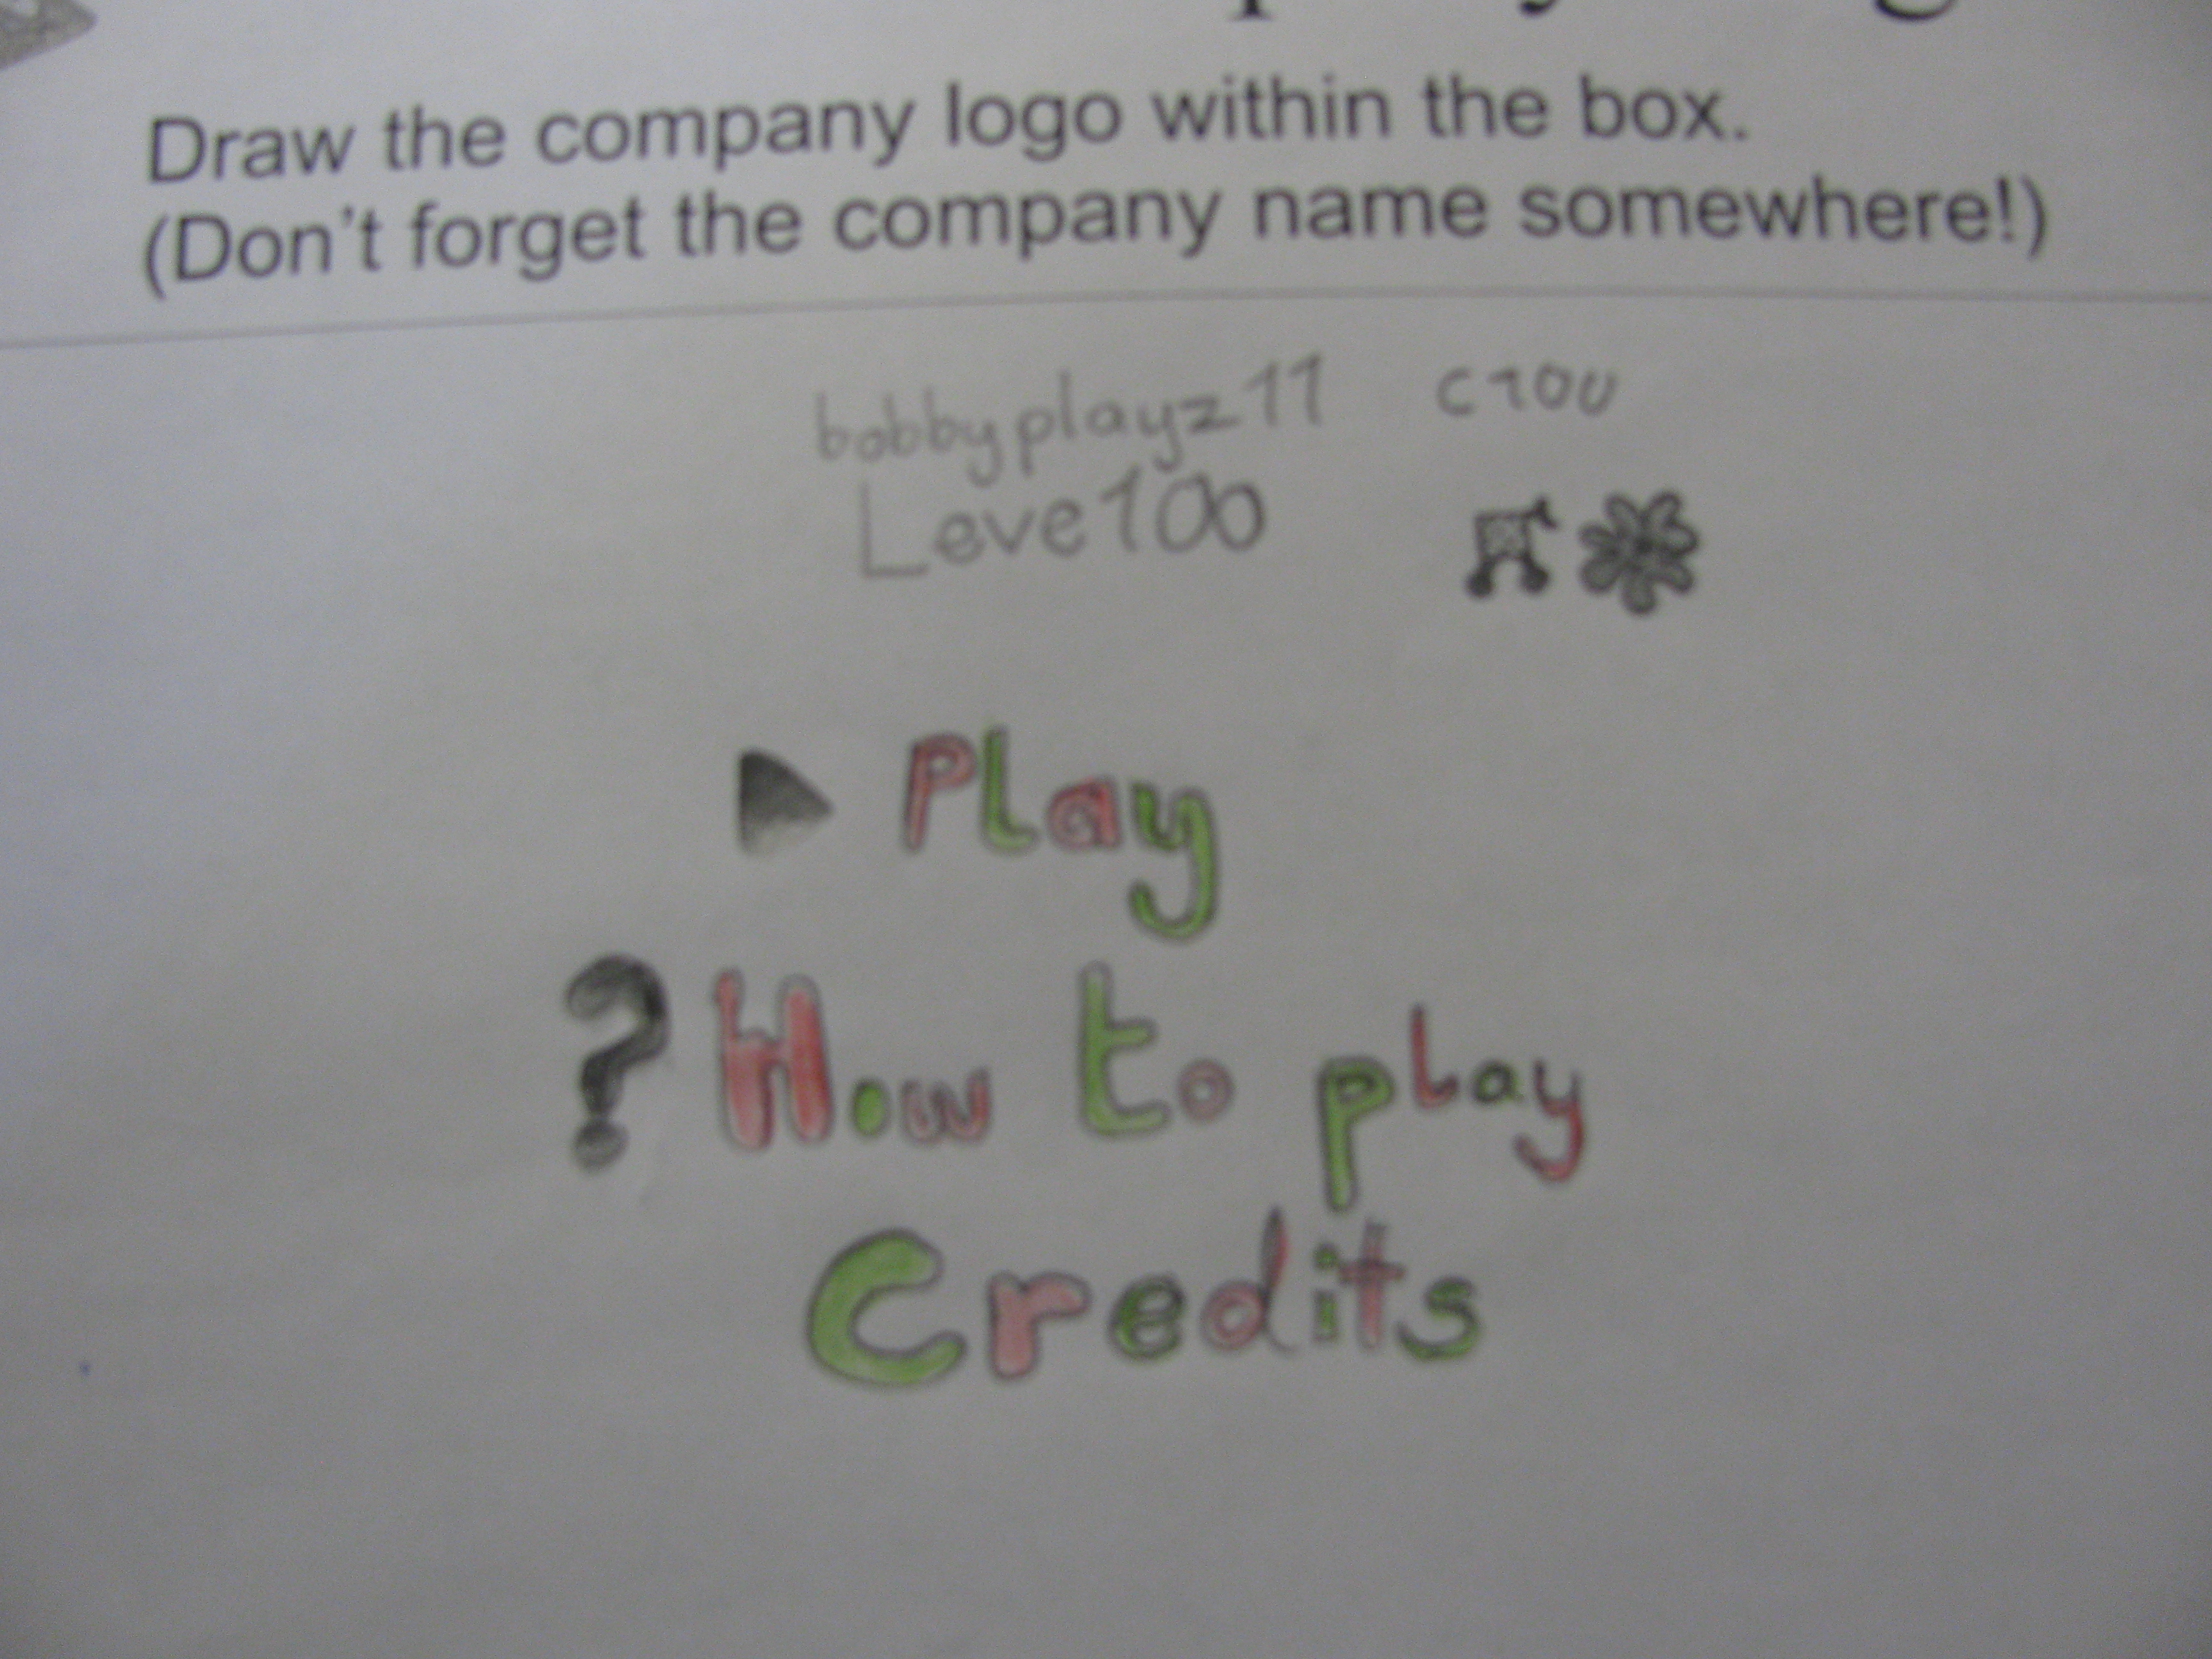 Draw the company logo within the box.
(Don't forget the company name somewhere!)
bobbyplayz11
Leve100
Play
? How to play
Credits